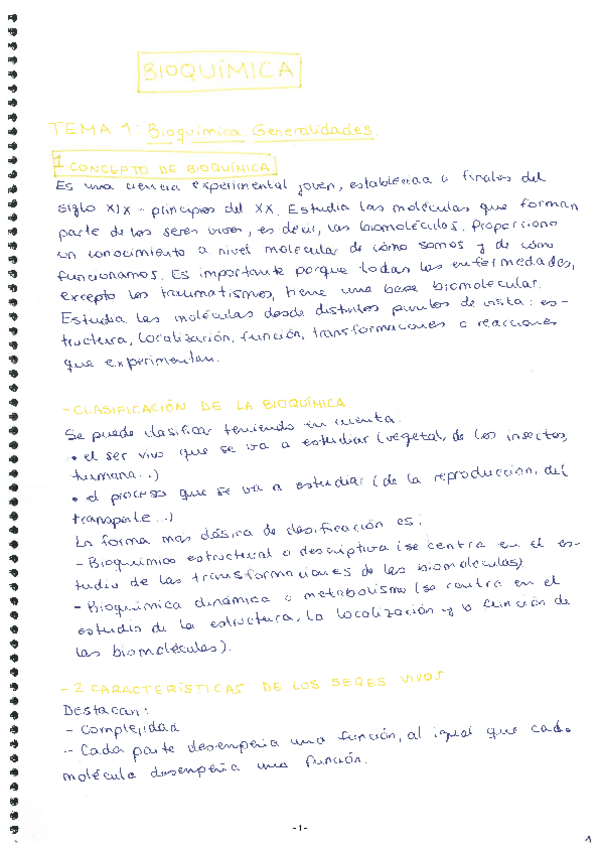 BIOQUÍMICA
TEMA 1: Bioquímica. Generalidades.
1 CONCEPTO DE BIOQUÍMICA
Es una ciencia experimental joven, establecida a finales del
siglo XIX - principios del XX. Estudia las moléculas que forman
parte de los seres vivos, es decir, las biomoléculas. Proporciona
un conocimiento a nivel molecular de cómo somos y de cómo
funcionamos. Es importante porque todas las enfermedades,
excepto los traumatismos, tiene una base biomolecular.
Estudia las moléculas desde distintos puntos de vista: es-
tructura, localización, función, transformaciones o reacciones
que experimentan.
- CLASIFICACIÓN DE LA BIOQUÍMICA
Se puede clasificar teniendo en cuenta:
• el ser vivo que se va a estudiar (vegetal, de los insectos,
humana...)
• el proceso que se va a estudiar (de la reproducción, del
transporte...)
La forma mas clásica de clasificación es:
- Bioquímica estructural o descriptiva (se centra en el es-
tudio de las transformaciones de las biomoléculas)
- Bioquímica dinámica o metabolismo (se centra en el
estudio de la estructura, la localización y la función de
las biomoléculas).
- 2 CARACTERÍSTICAS DE LOS SERES VIVOS
Destacan:
- Complejidad
- Cada parte desempeña una función, al igual que cada
molécula desempeña una función.
-1-
1